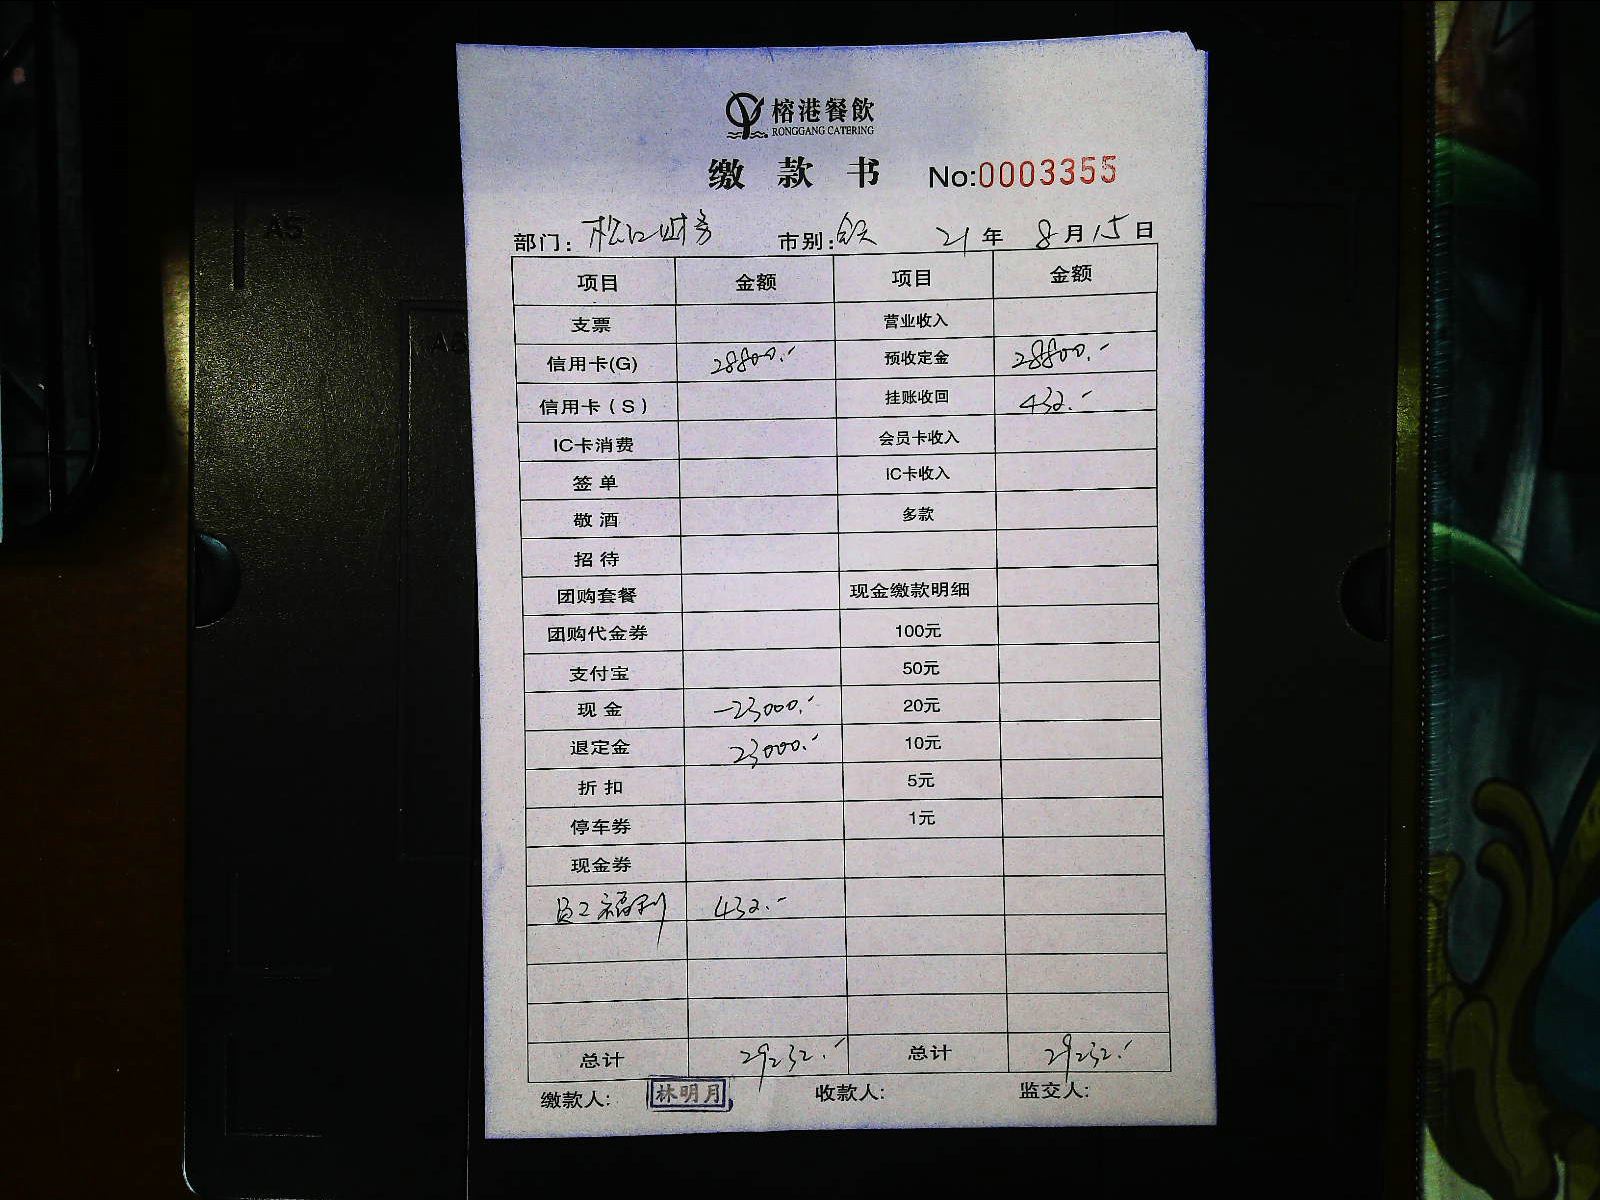 榕港餐飲
RONGGANG CATERING
缴款书 No:0003355
部门: 松江财务 市别: 全天 21年 8月15日
项目 金额 项目 金额
支票 营业收入
信用卡(G) 28800.- 预收定金 28800.-
信用卡(S) 挂账收回 432.-
IC卡消费 会员卡收入
签单 IC卡收入
敬酒 多款
招待
团购套餐 现金缴款明细
团购代金券 100元
支付宝 50元
现金 -23000.- 20元
退定金 23000.- 10元
折扣 5元
停车券 1元
现金券
员工福利 432.-
总计 29232.- 总计 29232.-
缴款人: 林明月 收款人: 监交人:
A5